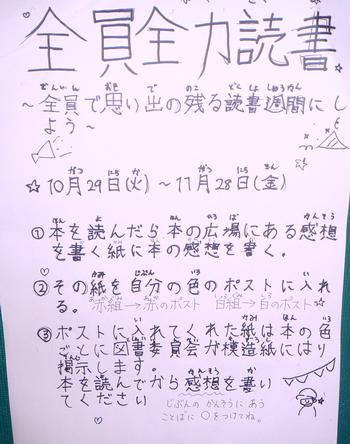 全員全力読書
～全員で思い出の残る読書週間にし
よう～
☆10月29日(火)～11月28日(金)
①本を読んだら本の広場にある感想
を書く紙に本の感想を書く。
②その紙を自分の色のポストに入れ
る。赤組→赤のポスト 白組→白のポスト☆
③ポストに入れてくれた紙は本の色
ごとに図書委員会が模造紙にはり
掲示します。
本を読んでから感想を書い
てください
じぶんのかんそうにあう
ことばに○をつけてね。